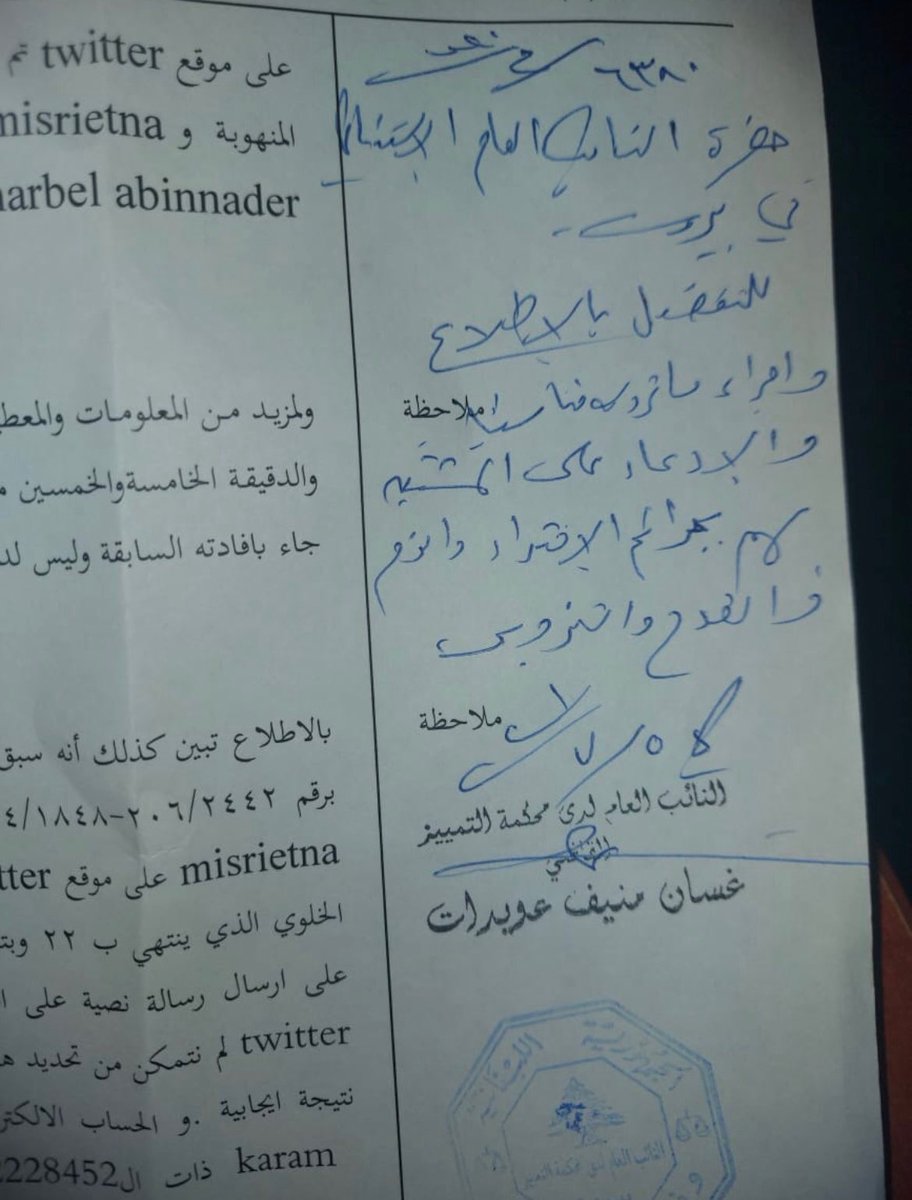 ٦٣٨٠
حضرة النائب العام الاستئنافي
في بيروت
للتفضل بالاطلاع
واجراء ما ترونه مناسبا
والادعاء على المشتبه
بهم بجرائم الافتراء والذم
والقدح والتزوير
النائب العام لدى محكمة التمييز
القاضي
غسان منيف عويدات
النائب العام لدى محكمة التمييز
ملاحظة
ملاحظة
على موقع twitter تم
المنهوبة و misrietna
harbel abinnader
ولمزيد من المعلومات والمعط
والدقيقة الخامسة والخمسين
جاء بافادته السابقة وليس لد
بالاطلاع تبين كذلك أنه سبق
برقم ٢٠٦/٢٤٤٢-٤/١٨٤٨
misrietna على موقع tter
الخلوي الذي ينتهي ب ٢٢ وبت
على ارسال رسالة نصية على ا
twitter لم نتمكن من تحديد ه
نتيجة ايجابية .و الحساب الالكتر
karam ذات ال2228452